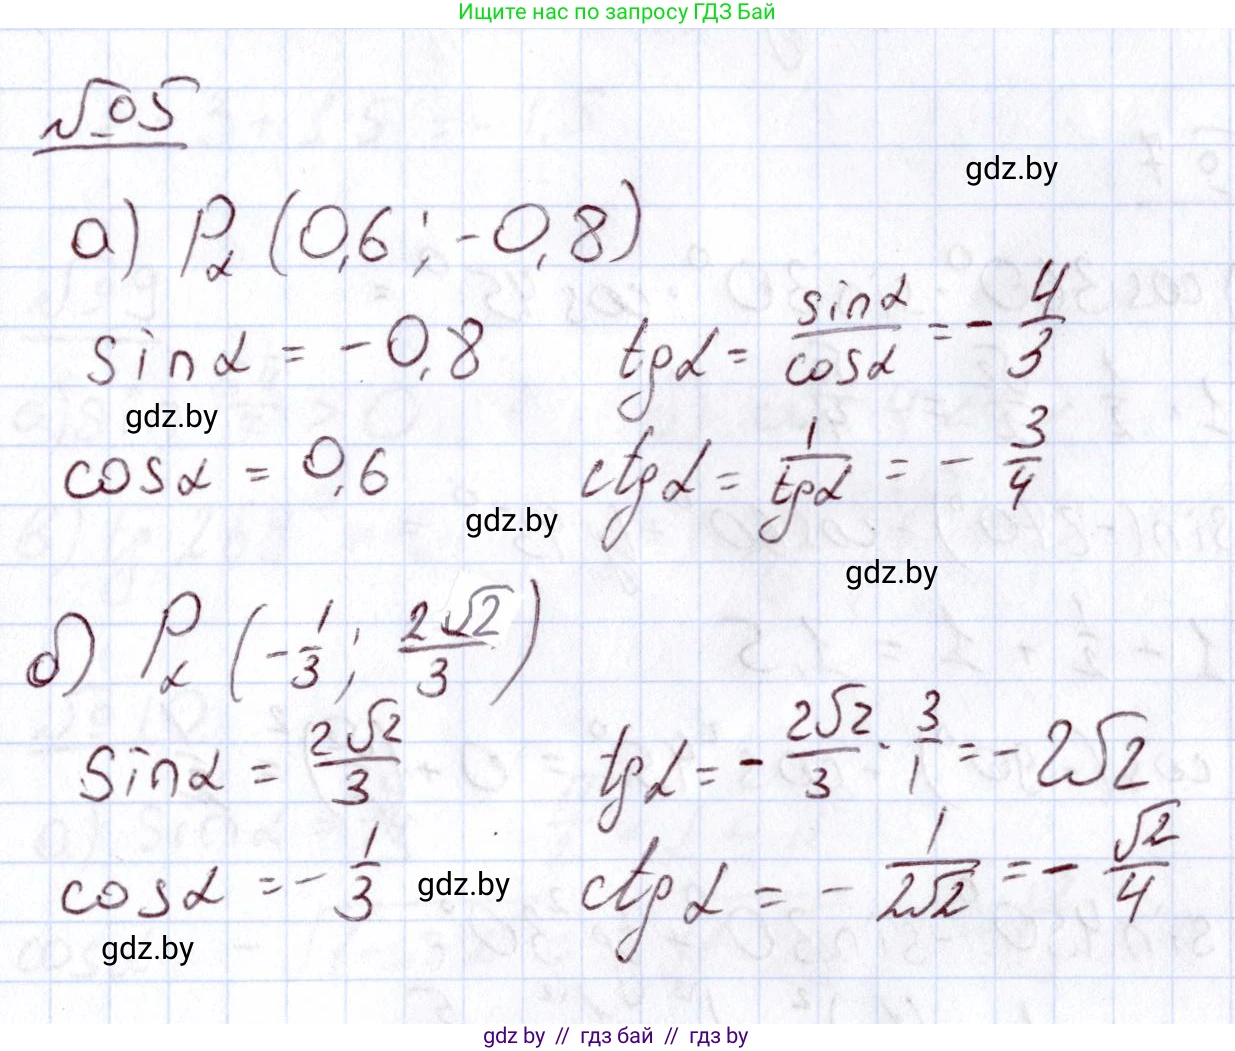 Ищите нас по запросу ГДЗ Бай
№05
gdz.by
а) Pα (0,6; -0,8)
sinα = -0,8
tgα = sinα/cosα = -4/3
gdz.by
cosα = 0,6
ctgα = 1/tgα = -3/4
gdz.by
gdz.by
б) Pα (-1/3; 2√2/3)
sinα = 2√2/3
tgα = -2√2/3 · 3/1 = -2√2
cosα = -1/3
ctgα = -1/2√2 = -√2/4
gdz.by
gdz.by
gdz.by // гдз бай // гдз by